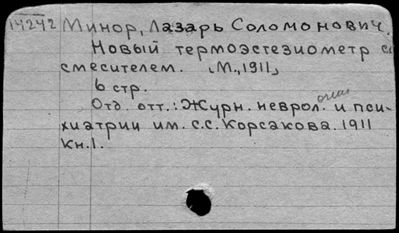 14242 Минор, Лазарь Соломонович.
Новый термоэстезиометр со
смесителем. [М., 1911]
6 стр.
Отд. отт.: Журн. неврол. и пси-
хиатрии им. С.С. Корсакова. 1911
Кн. 1.